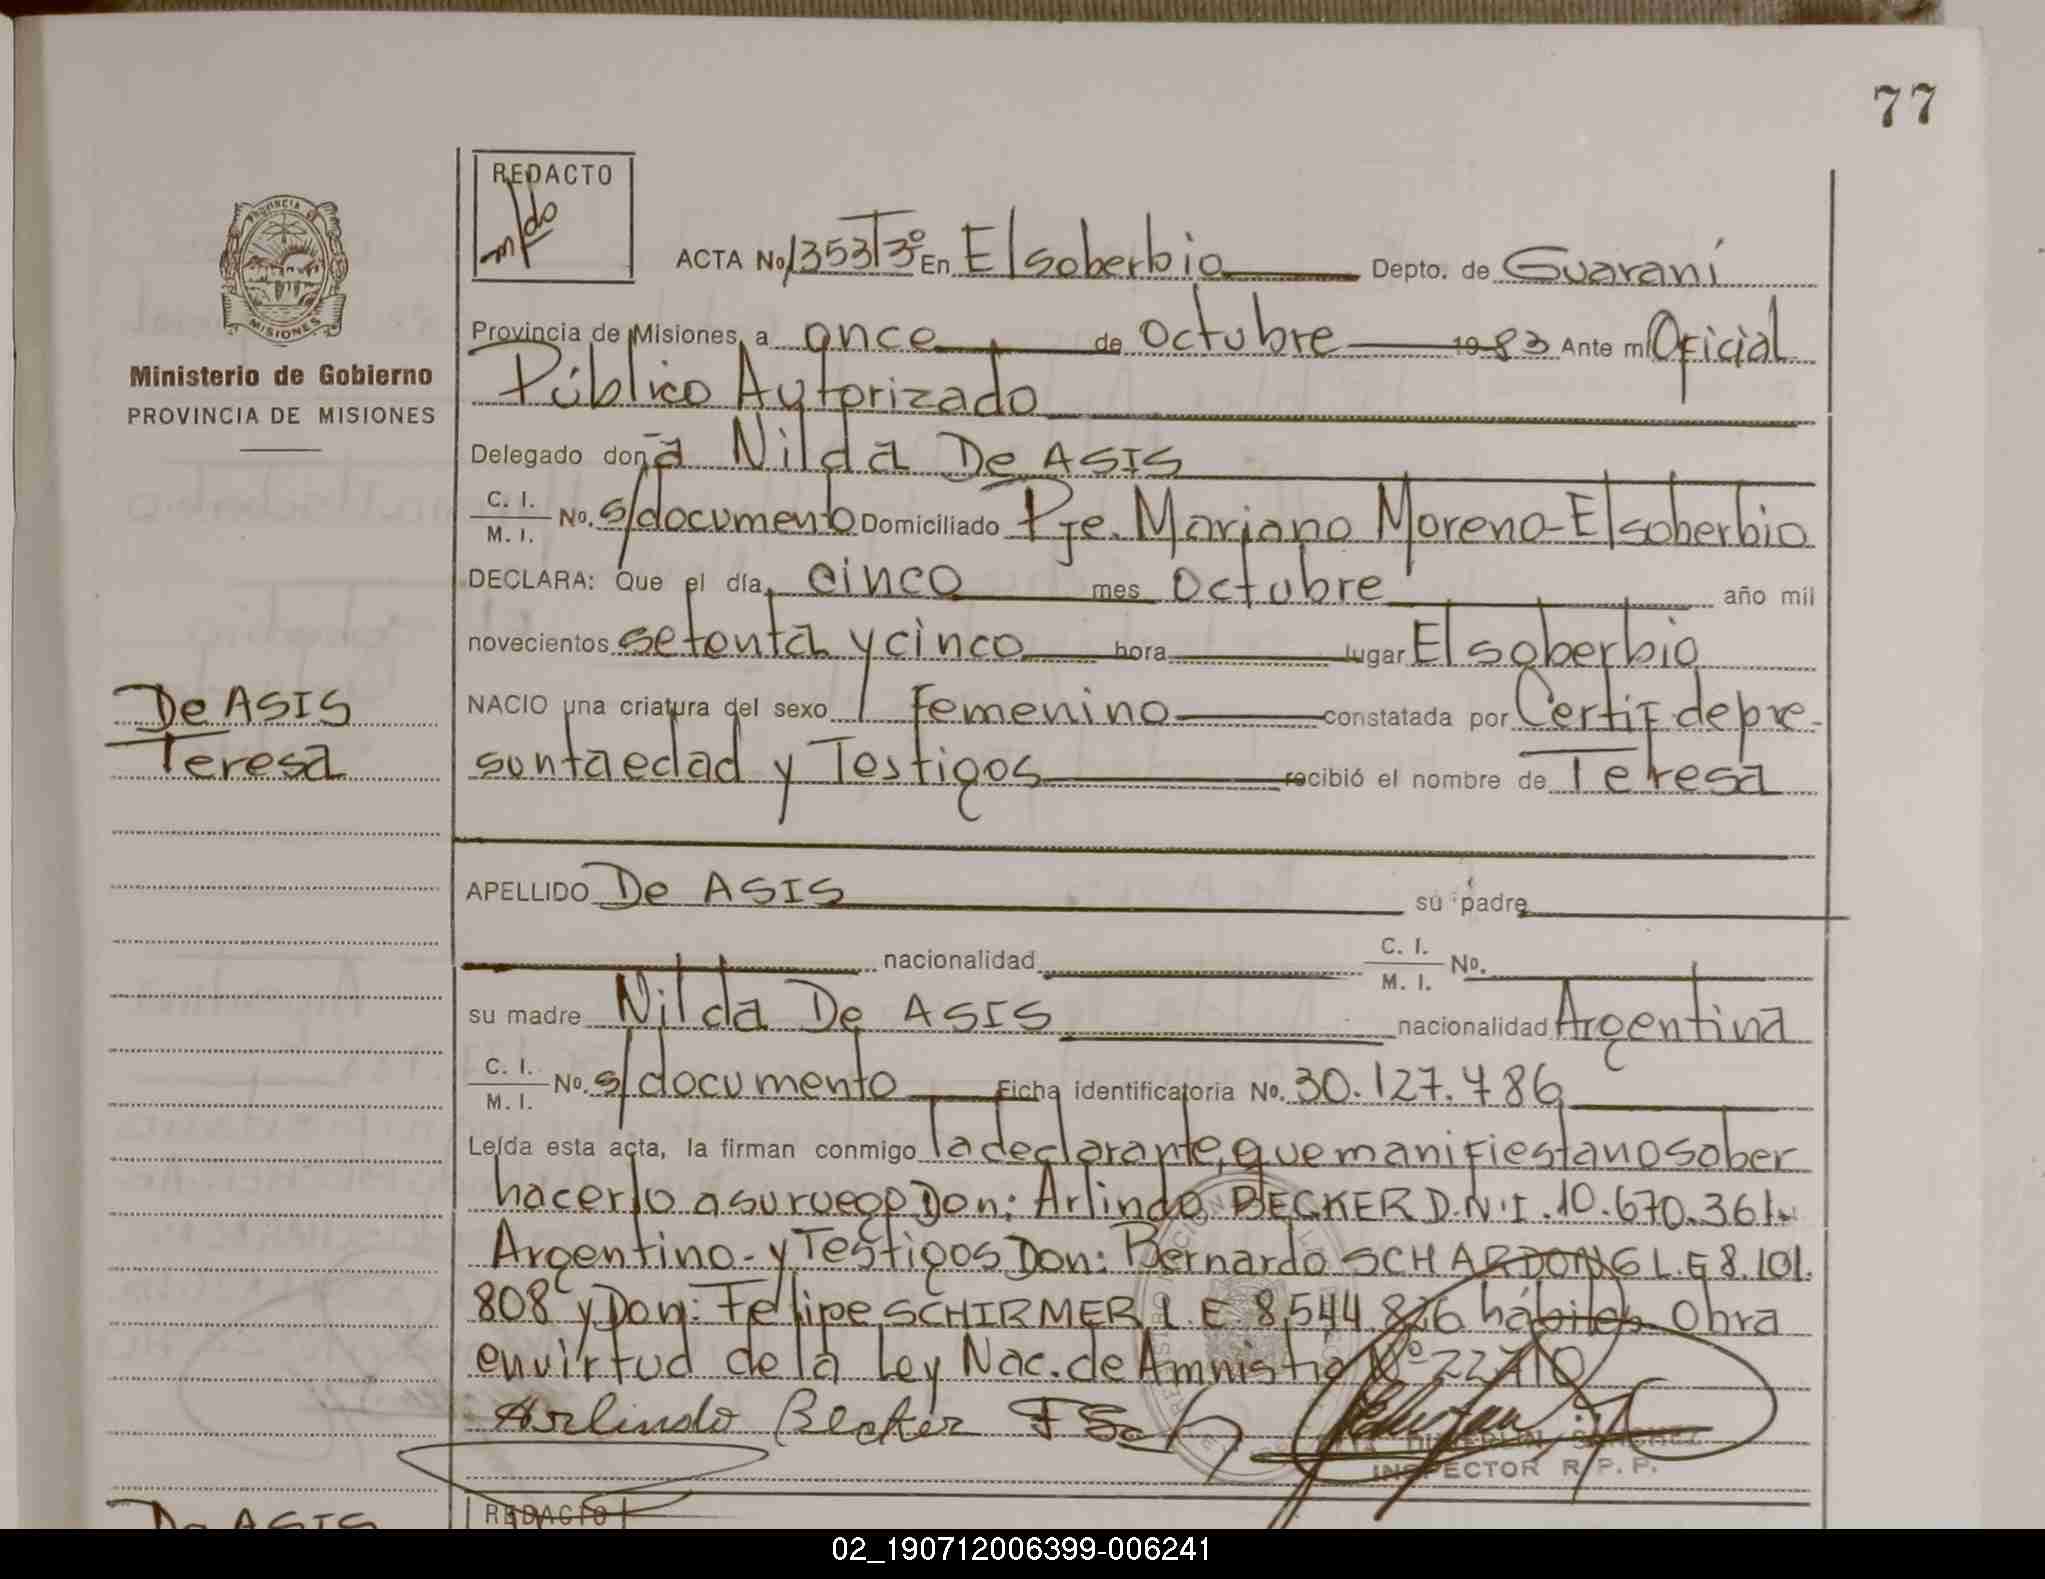 77
REDACTO
ACTA No 1353T3º En El soberbio Depto. de Guaraní
Provincia de Misiones, a once de octubre 1983 Ante mí Oficial
Público Autorizado
Ministerio de Gobierno
PROVINCIA DE MISIONES
Delegado doña Nilda De ASIS
C. I.
M. I. No. s/documento Domiciliado Pje. Mariano Moreno - El soberbio
DECLARA: Que el día cinco mes octubre año mil
novecientos setenta y cinco hora lugar El soberbio
De ASIS
Teresa
NACIO una criatura del sexo Femenino constatada por Certif de pre-
sunta edad y Testigos recibió el nombre de Teresa
APELLIDO De ASIS su padre
nacionalidad C. I.
M. I. No.
su madre Nilda De ASIS nacionalidad Argentina
C. I.
M. I. No. s/documento Ficha identificatoria No. 30.127.786
Leída esta acta, la firman conmigo la declarante, que manifiesta no saber
hacerlo a su ruego Don: Arlindo BECKER D.N.I. 10.670.361.
Argentino - y Testigos Don: Bernardo SCHARDONG L.E 8.101.
808 y Don: Felipe SCHIRMER L.E. 8.544.826 hábiles Obra
en virtud de la Ley Nac. de Amnistía Nº 22710
Arlindo Becker
INSPECTOR R. P. P.
De ASIS
REDACTO
02_190712006399-006241